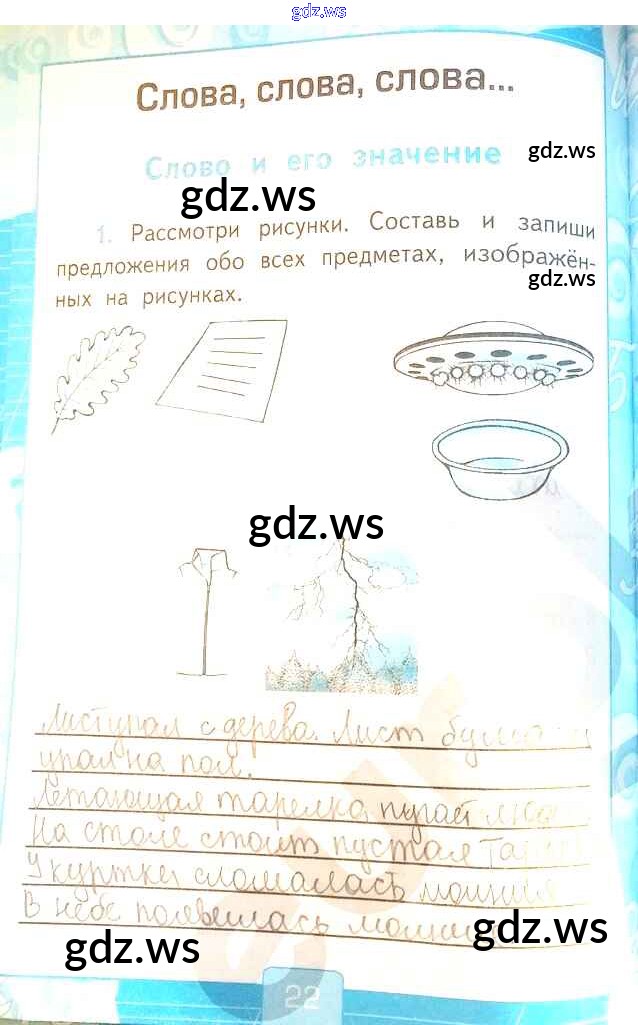 gdz.ws
Слова, слова, слова...
Слово и его значение
gdz.ws
gdz.ws
1. Рассмотри рисунки. Составь и запиши
предложения обо всех предметах, изображён-
gdz.ws
ных на рисунках.
gdz.ws
Лист упал с дерева. Лист бумаги
упал на пол.
Летающая тарелка пугает
На столе стоит пустая
У куртки сломалась молния
В небе появилась
gdz.ws
gdz.ws
22